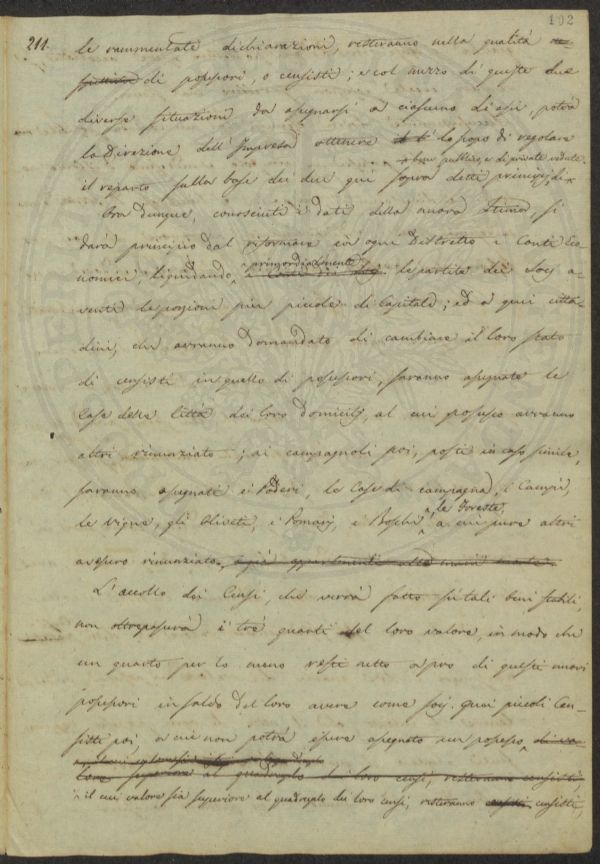 102
211.
le rammentate dichiarazioni, resteranno nella qualità
di possessori, o censisti; e col mezzo di queste due
diverse situazioni da assegnarsi a ciascuno di essi, potrà
la Direzione dell'Impresa ottenere lo scopo di regolare
x bene pubblico, e di private vedute.
il reparto sulla base dei due qui sopra detti principj, di x
Ora dunque, conosciuti i dati della nuova stima, si
darà principio dal riformare in ogni Distretto i Conti Eco-
primordialmente
nomici, liquidando le partite dei Socj a-
venti le porzioni più piccole di capitale; ed a quei citta-
dini, che avranno domandato di cambiare il loro stato
di censisti in quello di possessori, saranno assegnate le
Case delle Città dei loro domicilj, al cui possesso avranno
altri rinunziato; ai campagnoli poi, posti in caso simile,
saranno assegnati i Poderi, le Case di campagna, i Campi,
le Foreste,
le vigne, gli Oliveti, i Pomarj, i Boschi, a cui pure altri
avessero rinunziato.
L'accollo dei Censi, che verrà fatto su tali beni stabili,
non oltrepasserà i tre quarti del loro valore, in modo che
un quarto per lo meno resti netto a pro di questi nuovi
possessori in saldo del loro avere come socj. Quei piccoli Cen-
sisti poi, a cui non potrà essere assegnato un possesso
lore superiore al quadruplo dei loro censi, resteranno censisti,
il cui valore sia superiore al quadruplo dei loro censi, resteranno censisti,